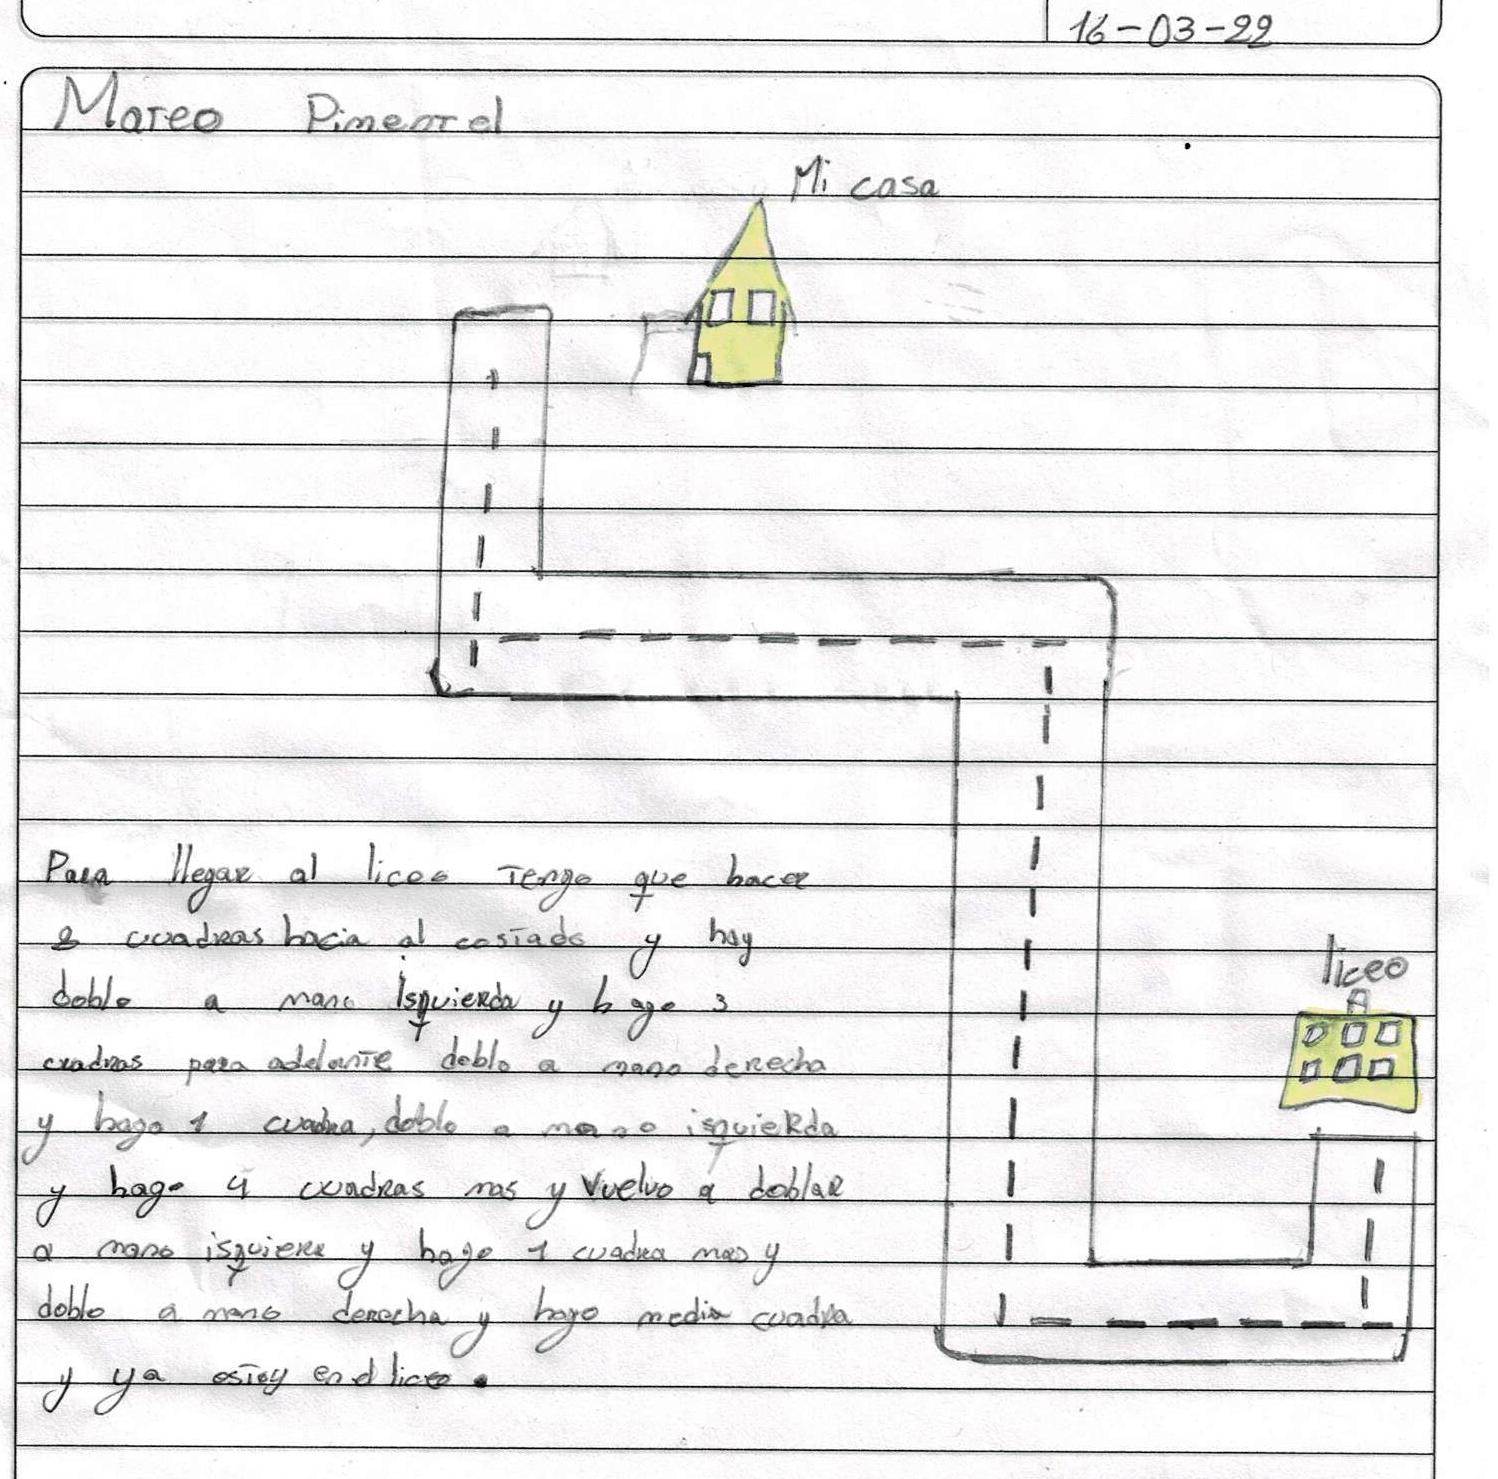 16-03-22
Mateo Pimentel
Mi casa
Para llegar al liceo Tengo que hacer
cuadras hacia al costado y hay
doblo a mano isquierda y hago 3
cuadras para adelante doblo a mano derecha
y hago 1 cuadra, doblo a mano isquierda
y hago 4 cuadras mas y Vuelvo a doblar
a mano isquiera y hago 1 cuadra mas y
doblo a mano derecha y hago media cuadra
y ya estoy en el liceo.
liceo